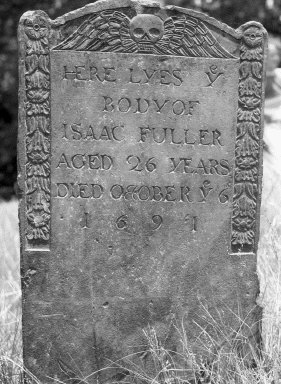 HERE LYES Yᵉ
BODY OF
ISAAC FULLER
AGED 26 YEARS
DIED OCTOBER Yᵉ 6
1691